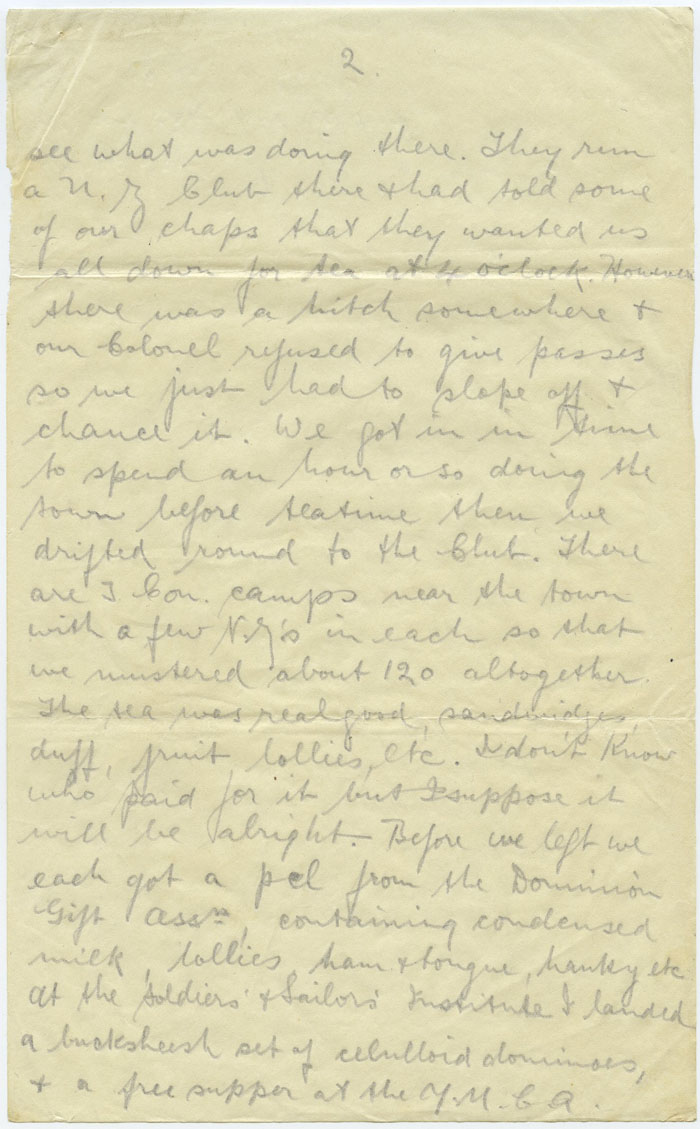 2.
see what was doing there. They run
a N.Z Club there & had told some
of our chaps that they wanted us
all down for tea at 4 o'clock. However
there was a hitch somewhere &
our Colonel refused to give passes
so we just had to slope off &
chance it. We got in in time
to spend an hour or so doing the
town before teatime then we
drifted round to the Club. There
are 3 Con. camps near the town
with a few N.Z's in each so that
we mustered about 120 altogether.
The tea was real good, sandwidges,
duff, fruit, lollies, etc. I don't know
who paid for it but I suppose it
will be alright. Before we left we
each got a pcl from the Dominion
Gift Assn, containing condensed
milk, lollies, ham & tongue, hanky etc
At the Soldiers' & Sailors' Institute I landed
a bucksheesh set of celulloid dominoes,
& a free supper at the Y.M.C.A.